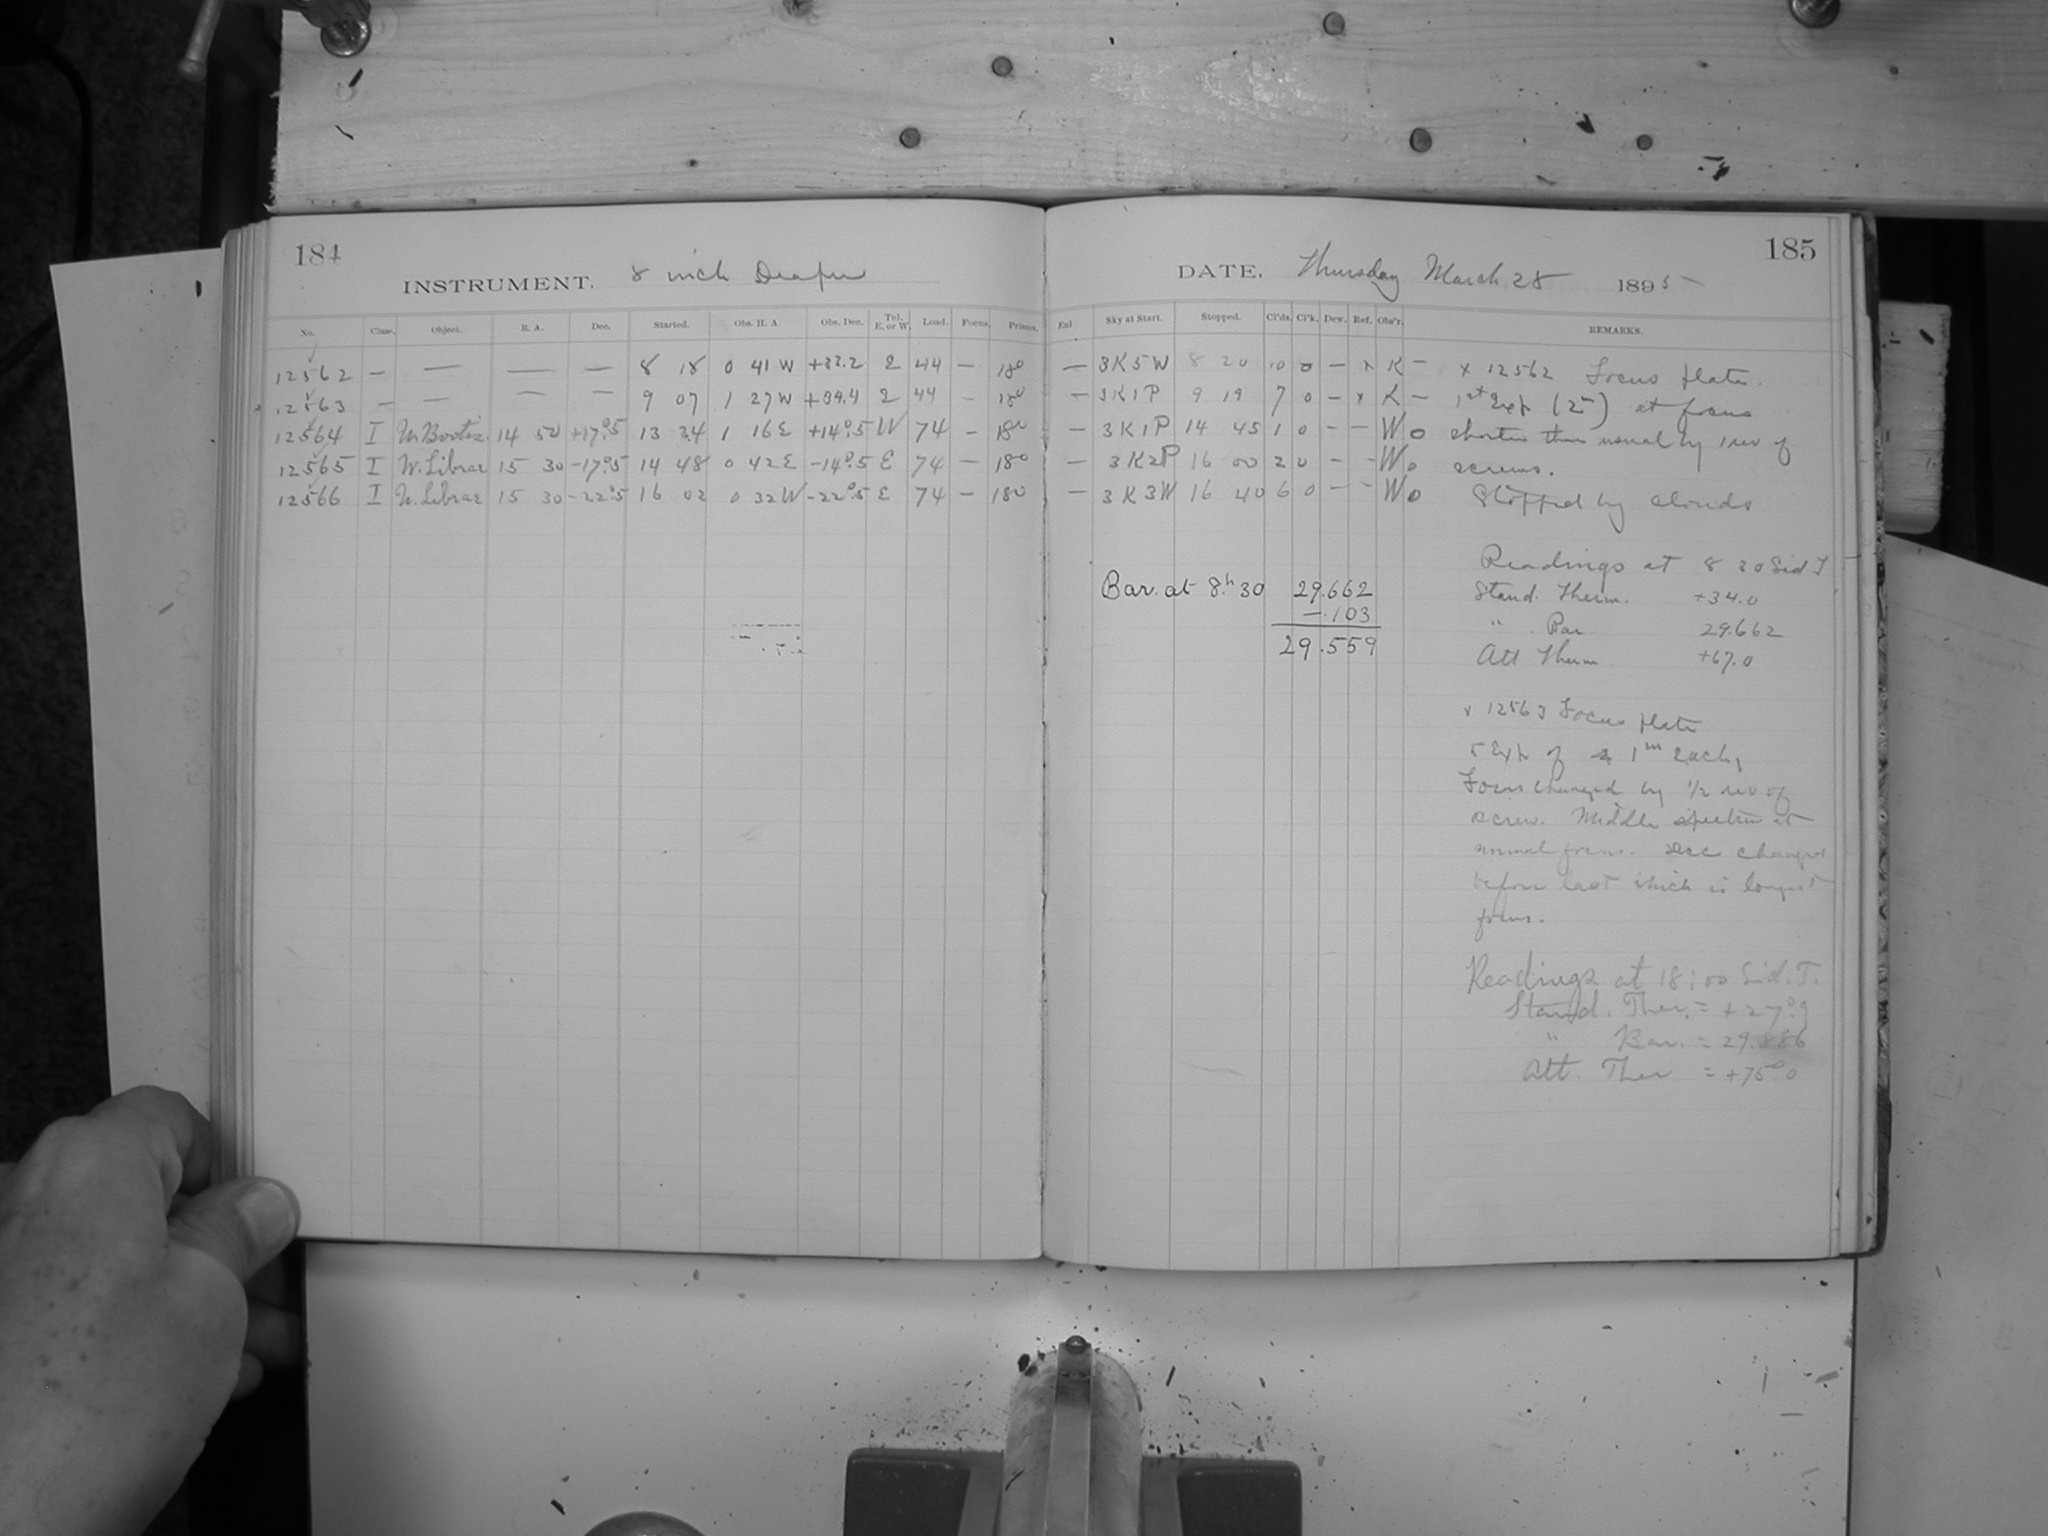 184
INSTRUMENT. 8 inch Draper
No. Class. Object. R. A. Dec. Started. Obs. H. A. Obs. Dec. Tel. E. or W. Load. Focus. Prisms.
12562 — — — — 8 18 0 41 W +33.2 E 44 — 180
12563 — — — — 9 07 1 27 W +39.4 E 44 — 180
12564 I W. Bootis 14 50 +17°.5 13 34 1 16 E +14°.5 W 74 — 180
12565 I W. Librae 15 30 -17°.5 14 48 0 42 E -14°.5 E 74 — 180
12566 I W. Librae 15 30 -22°.5 16 02 0 32 W -22°.5 E 74 — 180
185
DATE. Thursday March 28 1895
Enl Sky at Start. Stopped. Cl'ds. Cl'k. Dew. Ref. Obs'r. REMARKS.
— 3K5W 8 20 10 0 — x K —
— 3K1P 9 19 7 0 — x K —
— 3K1P 14 45 1 0 — — Wo
— 3K2P 16 00 2 0 — — Wo
— 3K3W 16 40 6 0 — — Wo
x 12562 Focus plate.
1st Exp (2m) at focus
shorter than usual by 1 rev of
screws.
Stopped by clouds
Bar. at 8h.30 29.662
-.103
29.559
Readings at 8 30 Sid T
Stand. Therm. +34.0
" Bar 29.662
Att Therm +67.0
x 12563 Focus plate
5 Exp of 1m each,
Focus changed by 1/2 rev of
screw. Middle spectrum at
normal focus. Dec changed
before last which is longest
focus.
Readings at 18:00 Sid. T.
Stand. Ther. = +27°.9
" Bar. = 29.886
Att. Ther = +75°.0